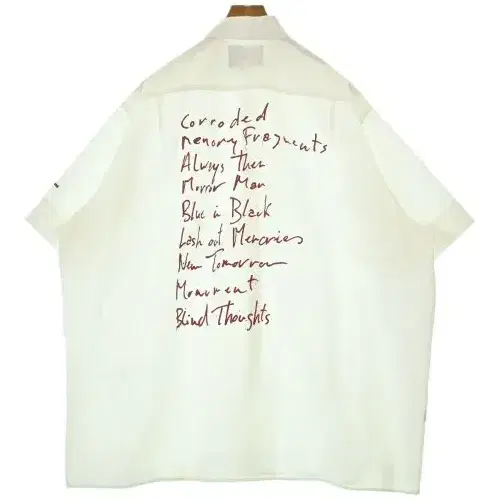 Corroded
Memory Fragments
Always Then
Mirror Man
Blue in Black
Lash out Memories
New Tomorrow
Monument
Blind Thoughts